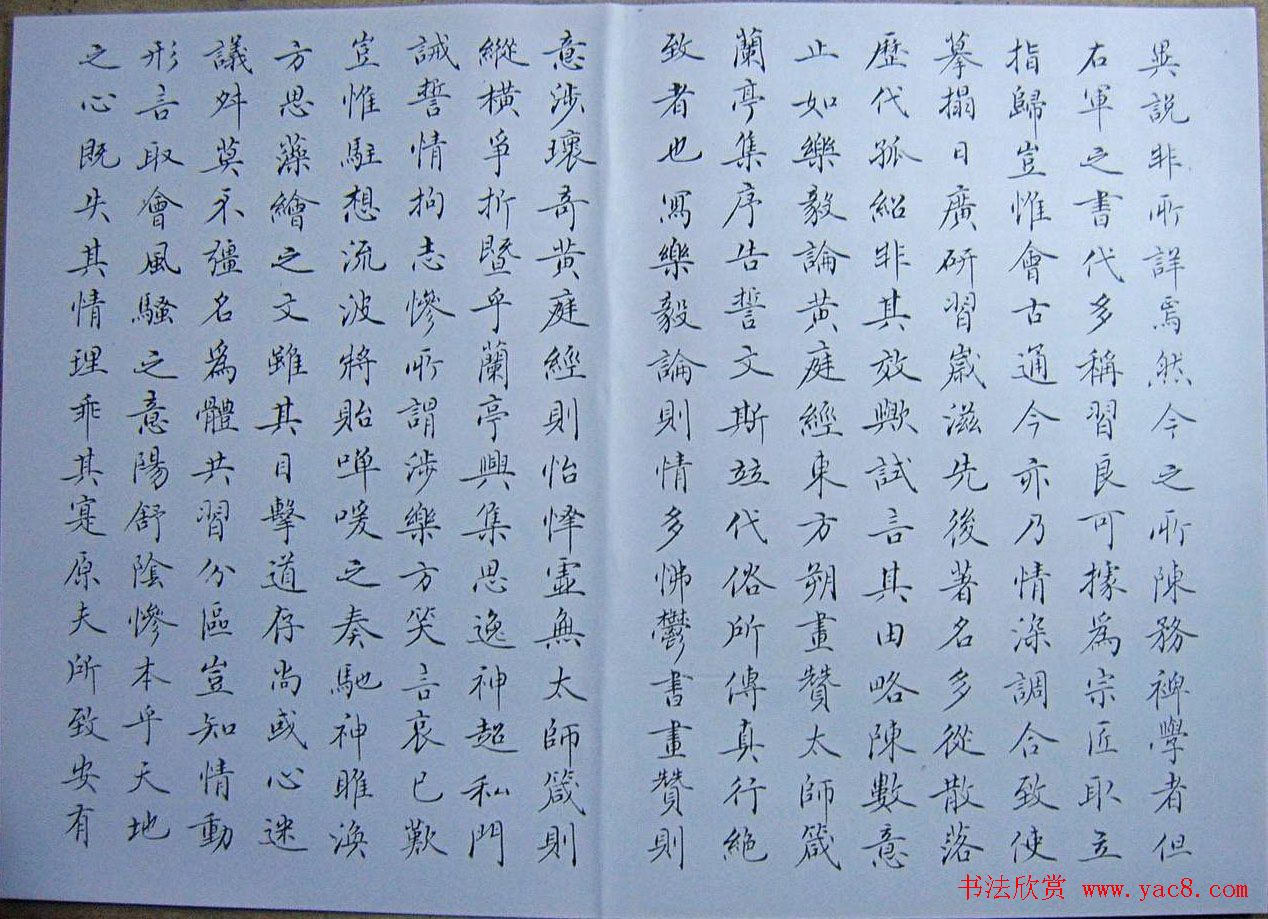 異說非所詳焉然今之所陳務裨學者但
右軍之書代多稱習良可據爲宗匠取立
指歸豈惟會古通今亦乃情深調合致使
摹搨日廣研習歲滋先後著名多從散落
歷代孤紹非其效歟試言其由略陳數意
止如樂毅論黃庭經東方朔畫贊太師箴
蘭亭集序告誓文斯竝代俗所傳真行絕
致者也寫樂毅論則情多怫鬱書畫贊則
意涉瓌奇黃庭經則怡懌虛無太師箴則
縱橫爭折暨乎蘭亭興集思逸神超私門
誡誓情拘志慘所謂涉樂方笑言哀已歎
豈惟駐想流波將貽嘽喛之奏馳神睢渙
方思藻繪之文雖其目擊道存尚或心迷
議舛莫不彊名爲體共習分區豈知情動
形言取會風騷之意陽舒陰慘本乎天地
之心既失其情理乖其寔原夫所致安有
书法欣赏 www.yac8.com